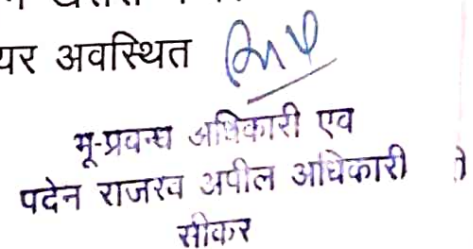 यर अवस्थित
भू-प्रवन्ध अधिकारी एव
पदेन राजस्व अपील अधिकारी
सीकर